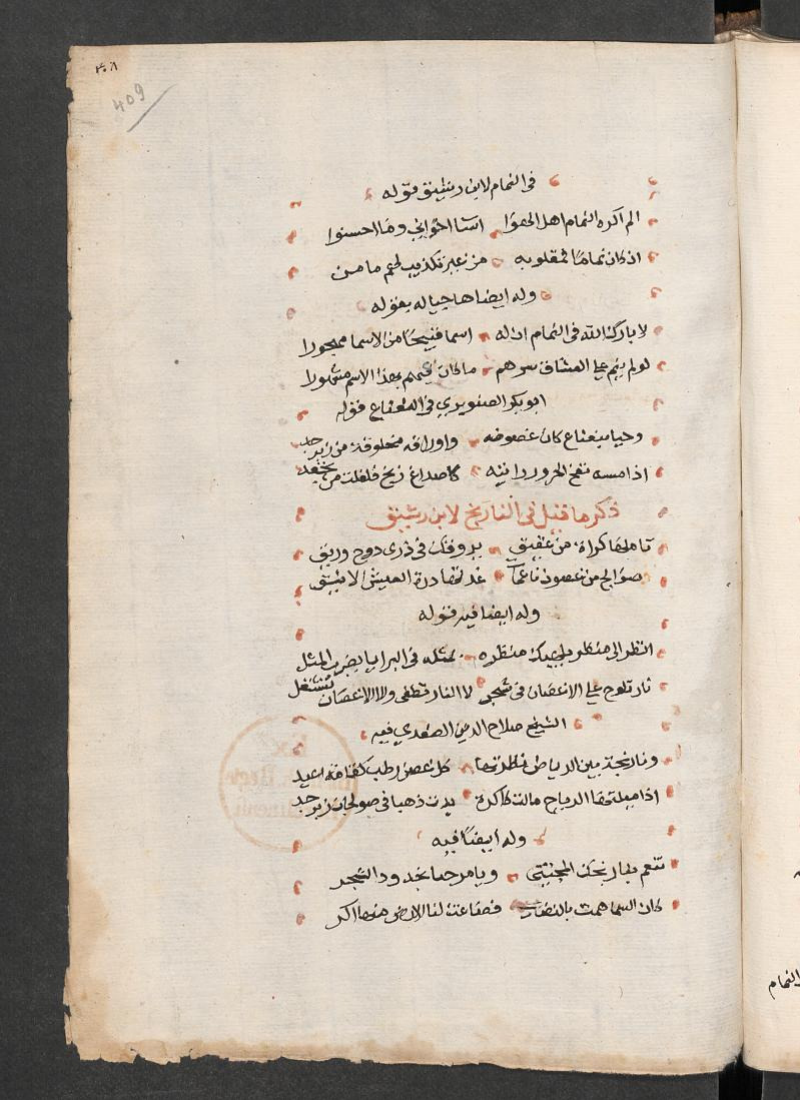 ٤٠٨
409
في النمام لابن رشيق قوله
لم اكره النمام اهل الهوا اسا اخواني وما احسنوا
ان كان نماما فمقلوبه من غير تكذيب لهم مامن
وله ايضا هاجيا له بقوله
لا بارك الله في النمام ان له اسما قبيحا من الاسما مهجورا
لو لم ينم على العشاق سرهم ما كان فيهم بهذا الاسم مشهورا
ابو بكر الصنوبري في النعناع قوله
وحيا بنعناع كان غصونه واوراقه مخلوقة من زبرجد
اذا مسه نفح الحرور رايته كاصداغ زنج فلفلت من تجعد
ذكر ما قيل في النارنج لابن رشيق
تاملها كراة من عقيق يروقك في ذرى دوح وريق
صوالج من غصون ناعمات غذتها درة العيش الانيق
وله ايضا فيه قوله
انظر الى منظر يلهيك منظره بمثله في البرايا يضرب المثل
نار تلوح على الاغصان في شجر لا النار تطفى ولا الاغصان تشتعل
الشيخ صلاح الدين الصفدي فيه
ونارنجة بين الرياض نظرتها على غصن رطب كقامة اغيد
اذا ميلتها الرياح مالت كاكرة بدت ذهبا في صولجان زبرجد
وله ايضا فيه
تنعم بنارنجك المجتنى ويا مرحبا بخدود الشجر
كان السما همت بالنضار فصاغت لنا الارض منها اكر
النمام